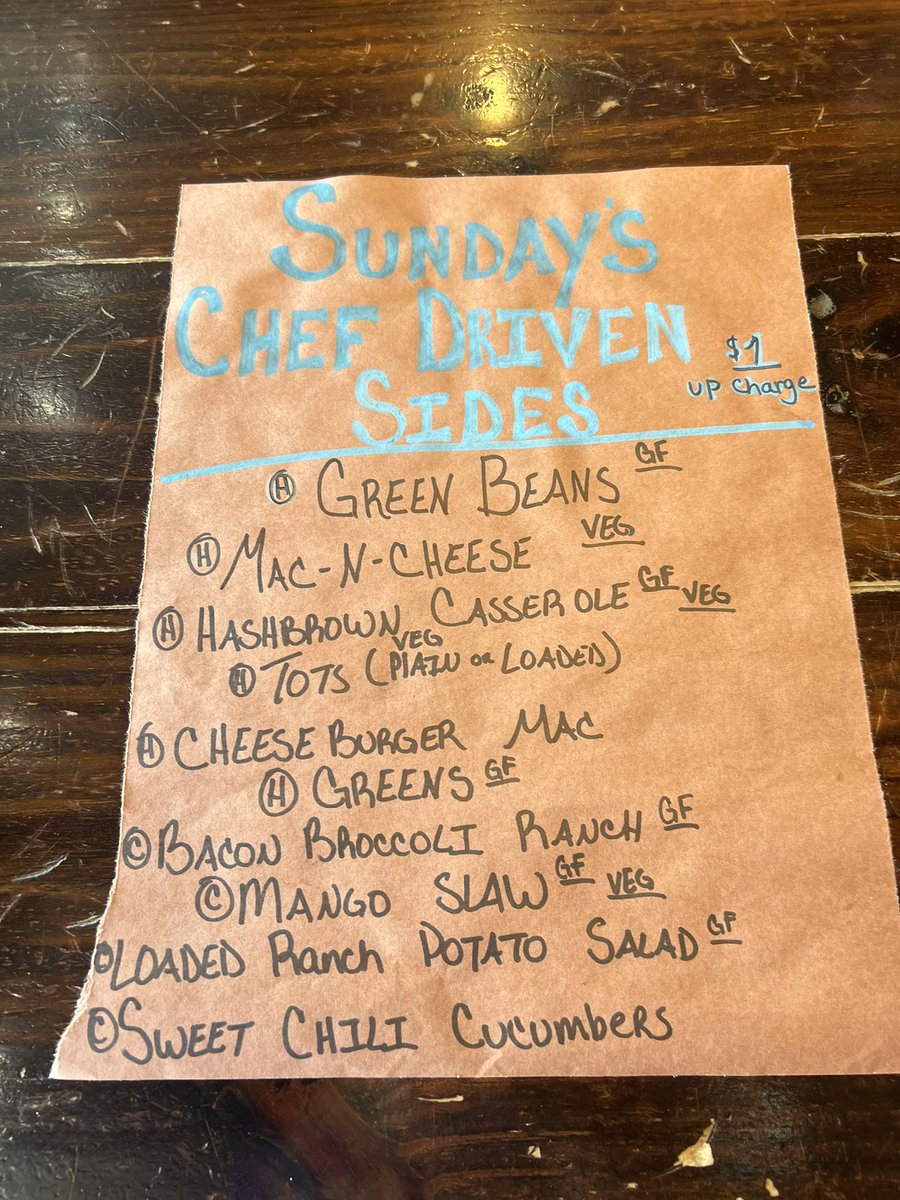 SUNDAY'S
CHEF DRIVEN
SIDES
$1
up charge
Ⓗ GREEN BEANS GF
Ⓗ MAC-N-CHEESE VEG
Ⓗ HASHBROWN CASSEROLE GF VEG
Ⓗ TOTS VEG (PLAIN OR LOADED)
Ⓗ CHEESEBURGER MAC
Ⓗ GREENS GF
Ⓒ BACON BROCCOLI RANCH GF
Ⓒ MANGO SLAW GF VEG
Ⓒ LOADED Ranch POTATO SALAD GF
Ⓒ SWEET CHILI CUCUMBERS